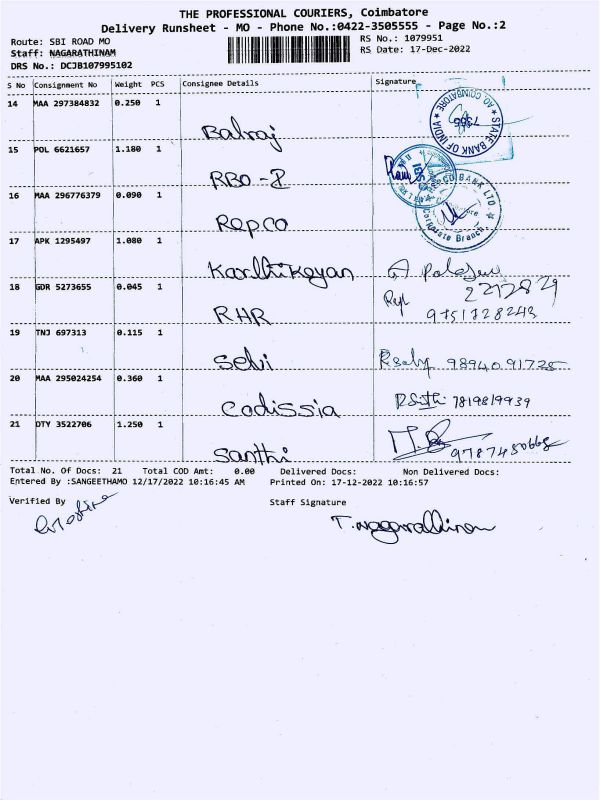 THE PROFESSIONAL COURIERS, Coimbatore
Delivery Runsheet - MO - Phone No.:0422-3505555 - Page No.:2
Route: SBI ROAD MO
RS No.: 1079951
Staff: NAGARATHINAM
RS Date: 17-Dec-2022
DRS No.: DCJB107995102
S No Consignment No Weight PCS Consignee Details Signature
14 MAA 297384832 0.250 1
Balraj
STATE BANK OF INDIA
AO, COIMBATORE
7566
15 POL 6621657 1.180 1
RBO - I
16 MAA 296776379 0.090 1
Repco
BANK LTD
Corporate Branch
17 APK 1295497 1.080 1
Karthikeyan
18 GDR 5273655 0.045 1
RHR
9751728243
19 TNJ 697313 0.115 1
Sebi
98940 91725
20 MAA 295024254 0.360 1
Codissia
7819819939
21 DTY 3522706 1.250 1
Santhi
Total No. Of Docs: 21 Total COD Amt: 0.00 Delivered Docs: Non Delivered Docs:
Entered By :SANGEETHAMO 12/17/2022 10:16:45 AM Printed On: 17-12-2022 10:16:57
Verified By Staff Signature
T. Nagarathinam